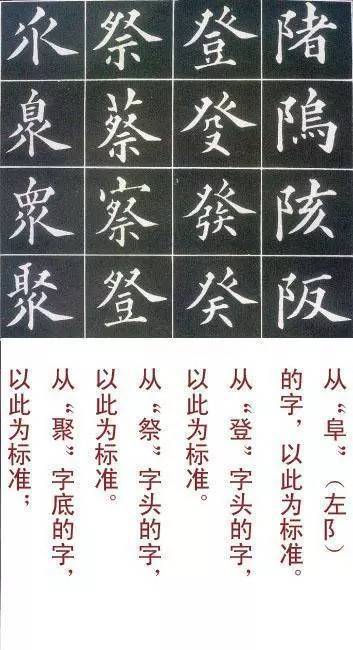 陼隖陔阪
登癹發癸
祭蔡察豋
乑臮眾聚
从“阜”（左阝）
的字，以此为标准。
从“登”字头的字，
以此为标准。
从“祭”字头的字，
以此为标准。
从“聚”字底的字，
以此为标准；